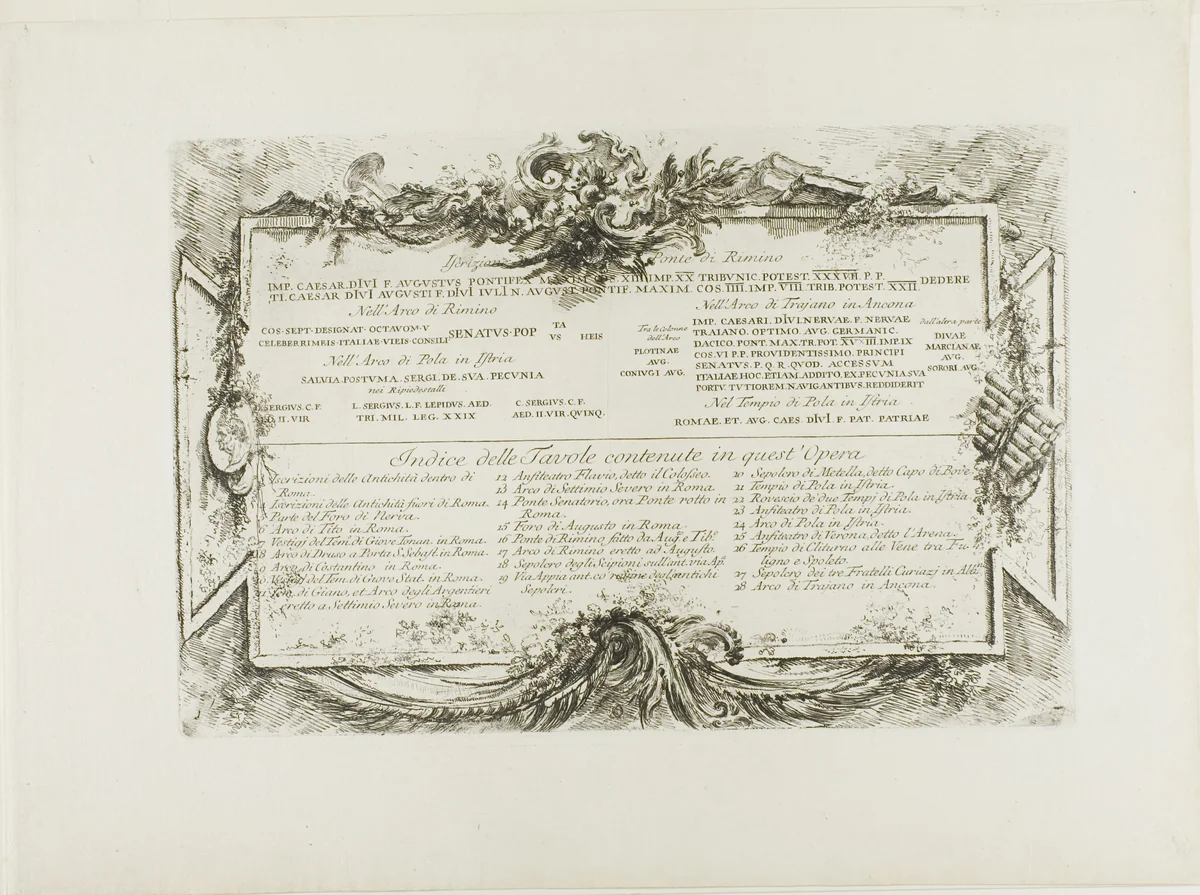 Iscrizion Ponte di Rimino
IMP. CAESAR.DIVI F. AUGUSTVS PONTIFEX MAXIM COS. XIII IMP. XX TRIBVNIC. POTEST. XXXVII. P. P.
TI. CAESAR DIVI AVGUSTI F. DIVI IVLI N. AVGVST. PONTIF. MAXIM. COS. IIII. IMP. VIII TRIB. POTEST. XXII DEDERE
Nell'Arco di Rimino
COS·SEPT·DESIGNAT·OCTAVOM·V
CELEBERRIMEIS·ITALIAE·VIEIS·CONSILI SENATVS·POP
TA
VS HEIS
Nell'Arco di Pola in Istria
SALVIA.POSTVMA.SERGI.DE.SVA.PECVNIA
nei Ripiedestalli
SERGIVS. C. F.
AED. II. VIR
L. SERGIVS. L. F. LEPIDVS. AED.
TRI. MIL. LEG. XXIX
C. SERGIVS. C. F.
AED. II. VIR. QVINQ.
Nell'Arco di Trajano in Ancona
Tra le Colonne
dell'Arco
PLOTINAE
AVG.
CONIVGI AVG.
IMP. CAESARI. DIVI.NERVAE. F. NERVAE
TRAIANO. OPTIMO. AVG. GERMANIC.
DACICO. PONT. MAX.TR.POT. XVIIII.IMP.IX
COS. VI P.P. PROVIDENTISSIMO. PRINCIPI
SENATVS. P. Q. R. QVOD. ACCESSVM
ITALIAE.HOC.ETIAM.ADDITO.EX.PECVNIA SVA
PORTV. TVTIOREM.NAVIGANTIBVS.REDDIDERIT
dall'altra parte
DIVAE
MARCIANAE
AVG.
SORORI. AVG.
Nel Tempio di Pola in Istria
ROMAE. ET. AVG. CAES. DIVI. F. PAT. PATRIAE
Indice delle Tavole contenute in quest'Opera
Iscrizioni delle Antichità dentro di
Roma.
4 Iscrizioni delle Antichità fuori di Roma.
5 Parte del Foro di Nerva.
6 Arco di Tito in Roma.
7 Vestigi del Tem. di Giove Tonan. in Roma.
8 Arco di Druso a Porta S. Sebast. in Roma.
9 Arco di Costantino in Roma.
10 Vestigi del Tem. di Giove Stat. in Roma.
11 Tem. di Giano, et Arco degli Argentieri
eretto a Settimio Severo in Roma.
12 Anfiteatro Flavio, detto il Colosseo.
13 Arco di Settimio Severo in Roma.
14 Ponte Senatorio, ora Ponte rotto in
Roma.
15 Foro di Augusto in Roma.
16 Ponte di Rimino fatto da Aug. e Tib.
17 Arco di Rimino eretto ad Augusto.
18 Sepolcro degli Scipioni sull'ant. via Ap.
19 Via Appia ant. co degli antichi
Sepolcri.
20 Sepolcro di Metella, detto Capo di Bove.
21 Tempio di Pola in Istria.
22 Rovescio de due Tempj di Pola in Istria.
23 Anfiteatro di Pola in Istria.
24 Arco di Pola in Istria.
25 Anfiteatro di Verona, detto l'Arena.
26 Tempio di Clitunno alle Vene tra Fu-
ligno e Spoleto.
27 Sepolcro dei tre Fratelli Curiazj in Alb.
28 Arco di Trajano in Ancona.